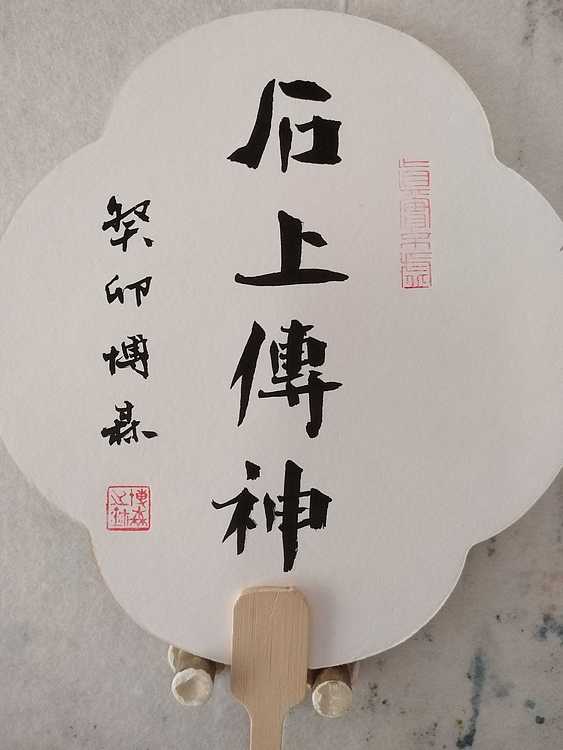 石上傳神
癸卯博森
博森